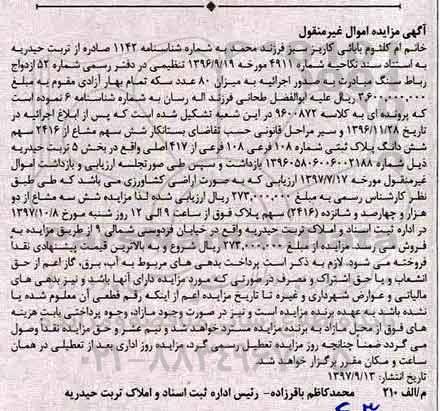 آگهی مزایده اموال غیرمنقول
خانم ام کلثوم بابائی کاریز سبز فرزند محمد به شماره شناسنامه ۱۱۴۲ صادره از تربت حیدریه
به استناد سند نکاحیه شماره ۴۹۱۱ مورخه ۱۳۹۶/۹/۱۹ تنظیمی در دفتر رسمی شماره ۵۲ ازدواج
رباط سنگ مبادرت به صدور اجرائیه به میزان ۸۰ عدد سکه تمام بهار آزادی مقوم به مبلغ
۳,۶۰۰,۰۰۰,۰۰۰ ریال علیه ابوالفضل طحانی فرزند اله رسان به شماره شناسنامه ۶ نموده است
که پرونده ای به کلاسه ۹۶۰۰۸۷۲ در این شعبه تشکیل شده است که پس از ابلاغ اجرائیه در
تاریخ ۱۳۹۶/۱۱/۲۸ و سیر مراحل قانونی حسب تقاضای بستانکار شش سهم مشاع از ۲۴۱۶ سهم
شش دانگ پلاک ثبتی شماره ۱۰۸ فرعی ۱۰۸ فرعی از ۴۱۷ اصلی واقع در بخش ۵ تربت حیدریه
ذیل شماره ۱۳۹۶۰۵۸۰۶۰۰۶۰۰۲۱۸۸ بازداشت و سپس طی صورتجلسه ارزیابی و بازداشت اموال
غیرمنقول مورخه ۱۳۹۷/۷/۱۷ ارزیابی که به صورت اراضی کشاورزی می باشد که طی طبق
نظر کارشناس رسمی به مبلغ ۲۷۳,۰۰۰,۰۰۰ ریال ارزیابی شده لذا مزایده شش سه مشاع از دو
هزار و چهارصد و شانزده (۲۴۱۶) سهم پلاک فوق از ساعت ۹ الی ۱۲ روز شنبه مورخ ۱۳۹۷/۱۰/۸
در اداره ثبت اسناد و املاک تربت حیدریه واقع در خیابان فردوسی شمالی ۹ از طریق مزایده به
فروش می رسد. مزایده از مبلغ ۲۷۳,۰۰۰,۰۰۰ ریال شروع و به بالاترین قیمت پیشنهادی نقداً
فروخته می شود. لازم به ذکر است پرداخت بدهی های مربوط به آب، برق، گاز اعم از حق
انشعاب و یا حق اشتراک و مصرف در صورتی که مورد مزایده دارای آنها باشد و نیز بدهی های
مالیاتی و عوارض شهرداری و غیره تا تاریخ مزایده اعم از اینکه رقم قطعی آن معلوم شده یا
نشده باشد به عهده برنده مزایده است و نیز در صورت وجود مازاد، وجوه پرداختی بابت هزینه
های فوق از محل مازاد به برنده مزایده مسترد خواهد شد و نیم عشر و حق مزایده نقداً وصول
می گردد ضمناً چنانچه روز مزایده تعطیل رسمی گردد، مزایده روز اداری بعد از تعطیلی در همان
ساعت و مکان مقرر برگزار خواهد شد.
تاریخ انتشار: ۱۳۹۷/۹/۱۳
م/الف ۲۱۰ محمدکاظم باقرزاده- رئیس اداره ثبت اسناد و املاک تربت حیدریه